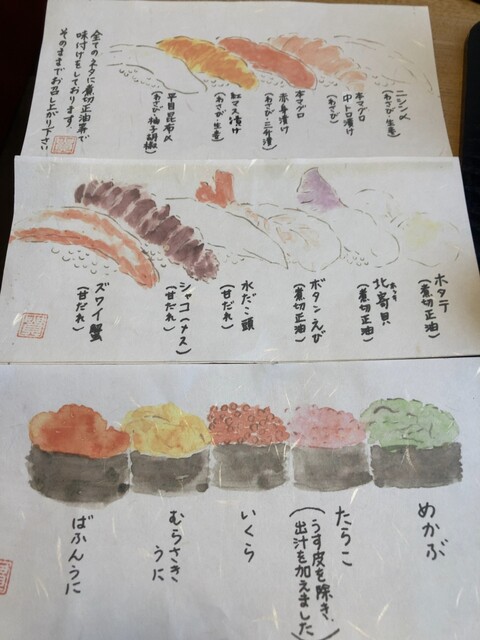 ニシン〆
(わさび・生姜)
本マグロ
中トロ漬け
(わさび)
本マグロ
赤身漬け
(わさび・三升漬)
紅マス漬け
(わさび・生姜)
平目昆布〆
(わさび・柚子胡椒)
全てのネタに煮切正油等で
味付けをしております。
そのままでお召し上がり下さい
ホタテ
(煮切正油)
ほっき
北寄貝
(煮切正油)
ボタンえび
(煮切正油)
水だこ頭
(甘だれ)
シャコ(オス)
(甘だれ)
ズワイ蟹
(甘だれ)
めかぶ
たらこ
(うす皮を除き、
出汁を加えました)
いくら
むらさき
うに
ばふんうに